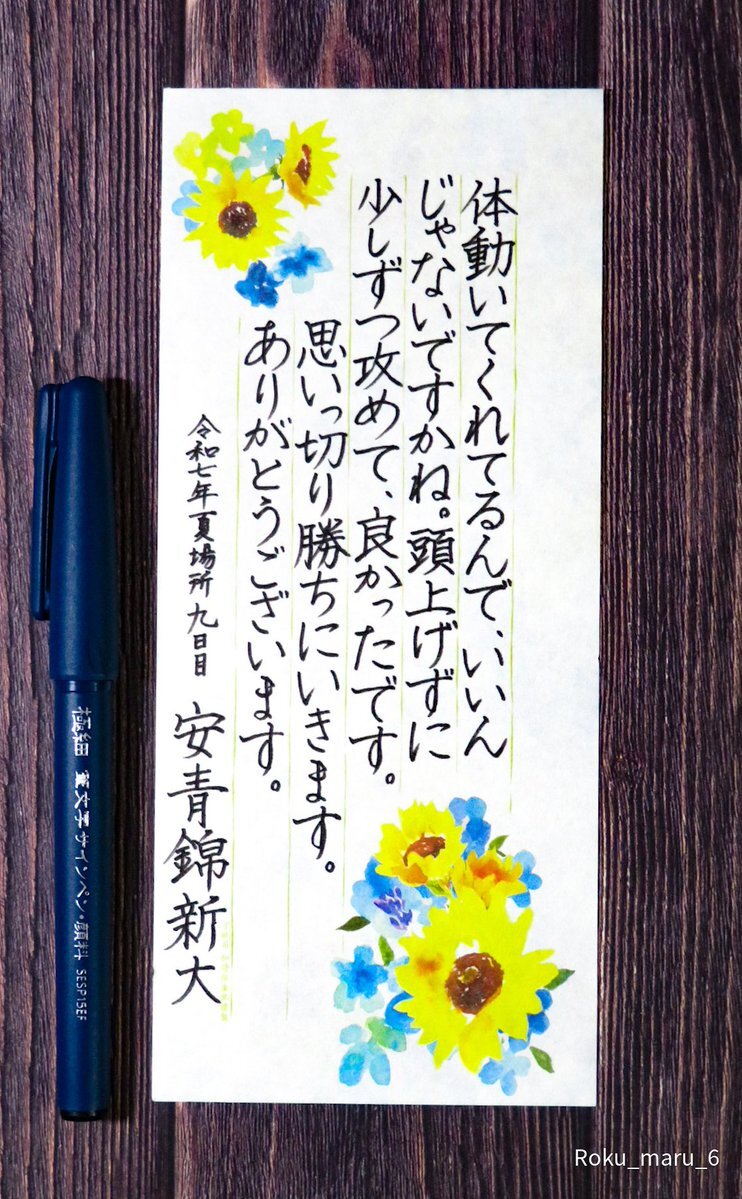 体動いてくれてるんで、いいん
じゃないですかね。頭上げずに
少しずつ攻めて、良かったです。
思いっ切り勝ちにいきます。
ありがとうございます。
令和七年夏場所九日目
安青錦新大
極細 筆文字サインペン・顔料 SESP15EF
Roku_maru_6